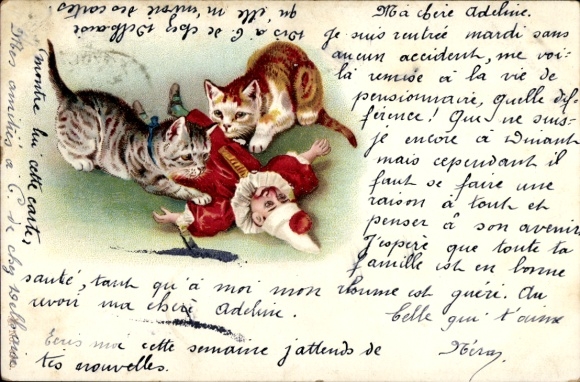 Ma chère Adeline.
Je suis rentrée mardi sans
aucun accident, me voi-
là remise à la vie de
pensionnaire, quelle dif-
férence! Que ne suis-
je encore à Dinant
mais cependant il
faut se faire une
raison à tout et
penser à son avenir
J'espère que toute ta
famille est en bonne
santé, tant qu'à moi mon rhume est guéri. Au
revoir ma chère Adeline.
Celle qui t'aime
Ecris moi cette semaine j'attends de
tes nouvelles.
Mes amitiés à C. de chez
montre lui cette carte,
dis à C. de chez
qu'elle m'envoie des cartes